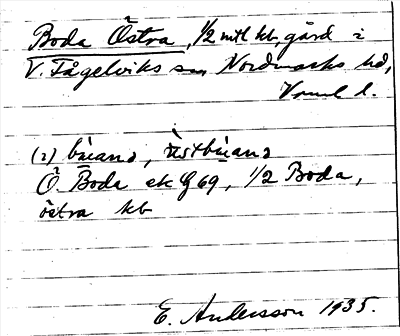 Boda Östra, 1/2 mtl kb, gård i
V. Fågelviks sn Nordmarks hd,
Vrml l.
(2) bu̇ana, östbu̇ana
Ö. Boda ek G 69, 1/2 Boda,
östra kb
E. Andersson 1935.